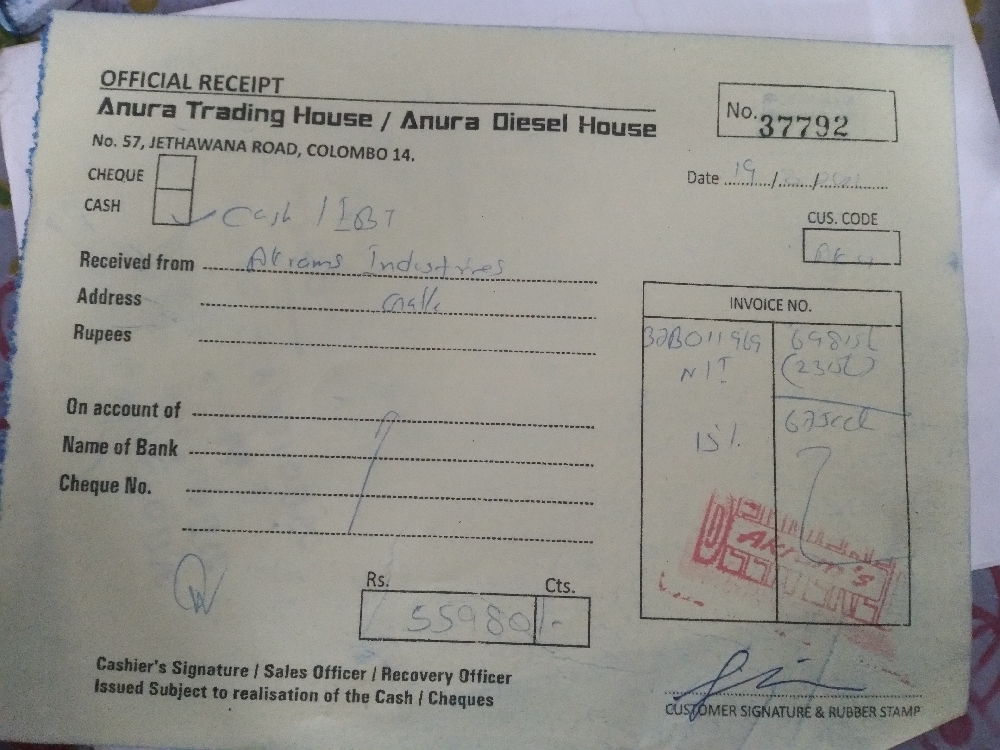 OFFICIAL RECEIPT
Anura Trading House / Anura Diesel House
No. 57, JETHAWANA ROAD, COLOMBO 14.
No. 37792
CHEQUE
CASH
Cash / IBT
Date 19
CUS. CODE
Received from Akrams Industries
Address Galle
Rupees
On account of
Name of Bank
Cheque No.
INVOICE NO.
15%
Rs. Cts.
55980 /-
Cashier's Signature / Sales Officer / Recovery Officer
Issued Subject to realisation of the Cash / Cheques
CUSTOMER SIGNATURE & RUBBER STAMP